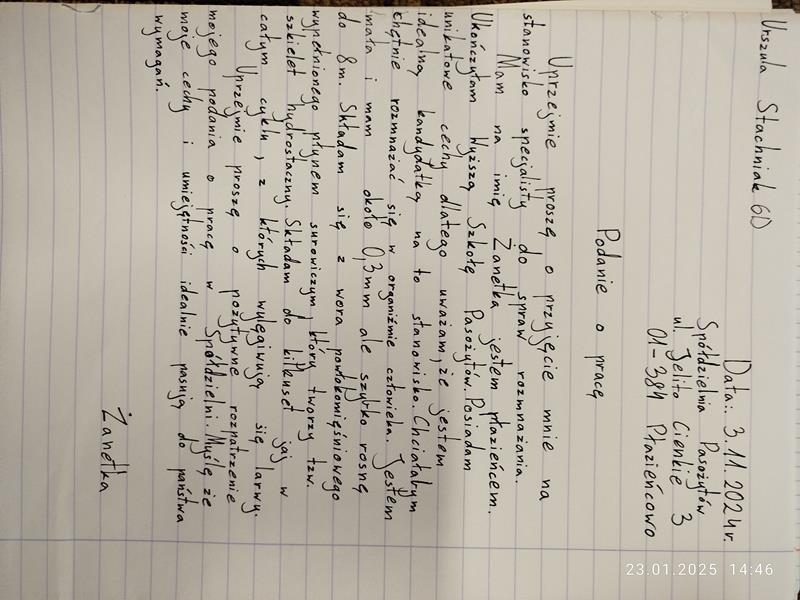 Urszula Stachniak 6D
Data:. 3.11.2024r.
Spółdzielnia Pasożytów
ul. Jelito Cienkie 3
01-384 Płazieńcowo
Podanie o pracę
Uprzejmie proszę o przyjęcie mnie na
stanowisko specjalisty do spraw rozmnażania.
Mam na imię Żanetka jestem płazieńcem.
Ukończyłam Wyższą Szkołę Pasożytów. Posiadam
unikatowe cechy dlatego uważam, że jestem
idealną kandydatką na to stanowisko. Chciałabym
chętnie rozmnażać się w organiźmie człowieka. Jestem
mała i mam około 0,3mm ale szybko rosnę
do 8m. Składam się z wora powłokomięśniowego
wypełnionego płynem surowiczym, który tworzy tzw.
szkielet hydrostaczny. Składam do kilkuset jaj w
całym cyklu, z których wylęgiwują się larwy.
Uprzejmie proszę o pozytywne rozpatrzenie
mojego podania o pracę w Spółdzielni. Myślę że
moje cechy i umiejętności idealnie pasują do państwa
wymagań.
Żanetka
23.01.2025 14:46